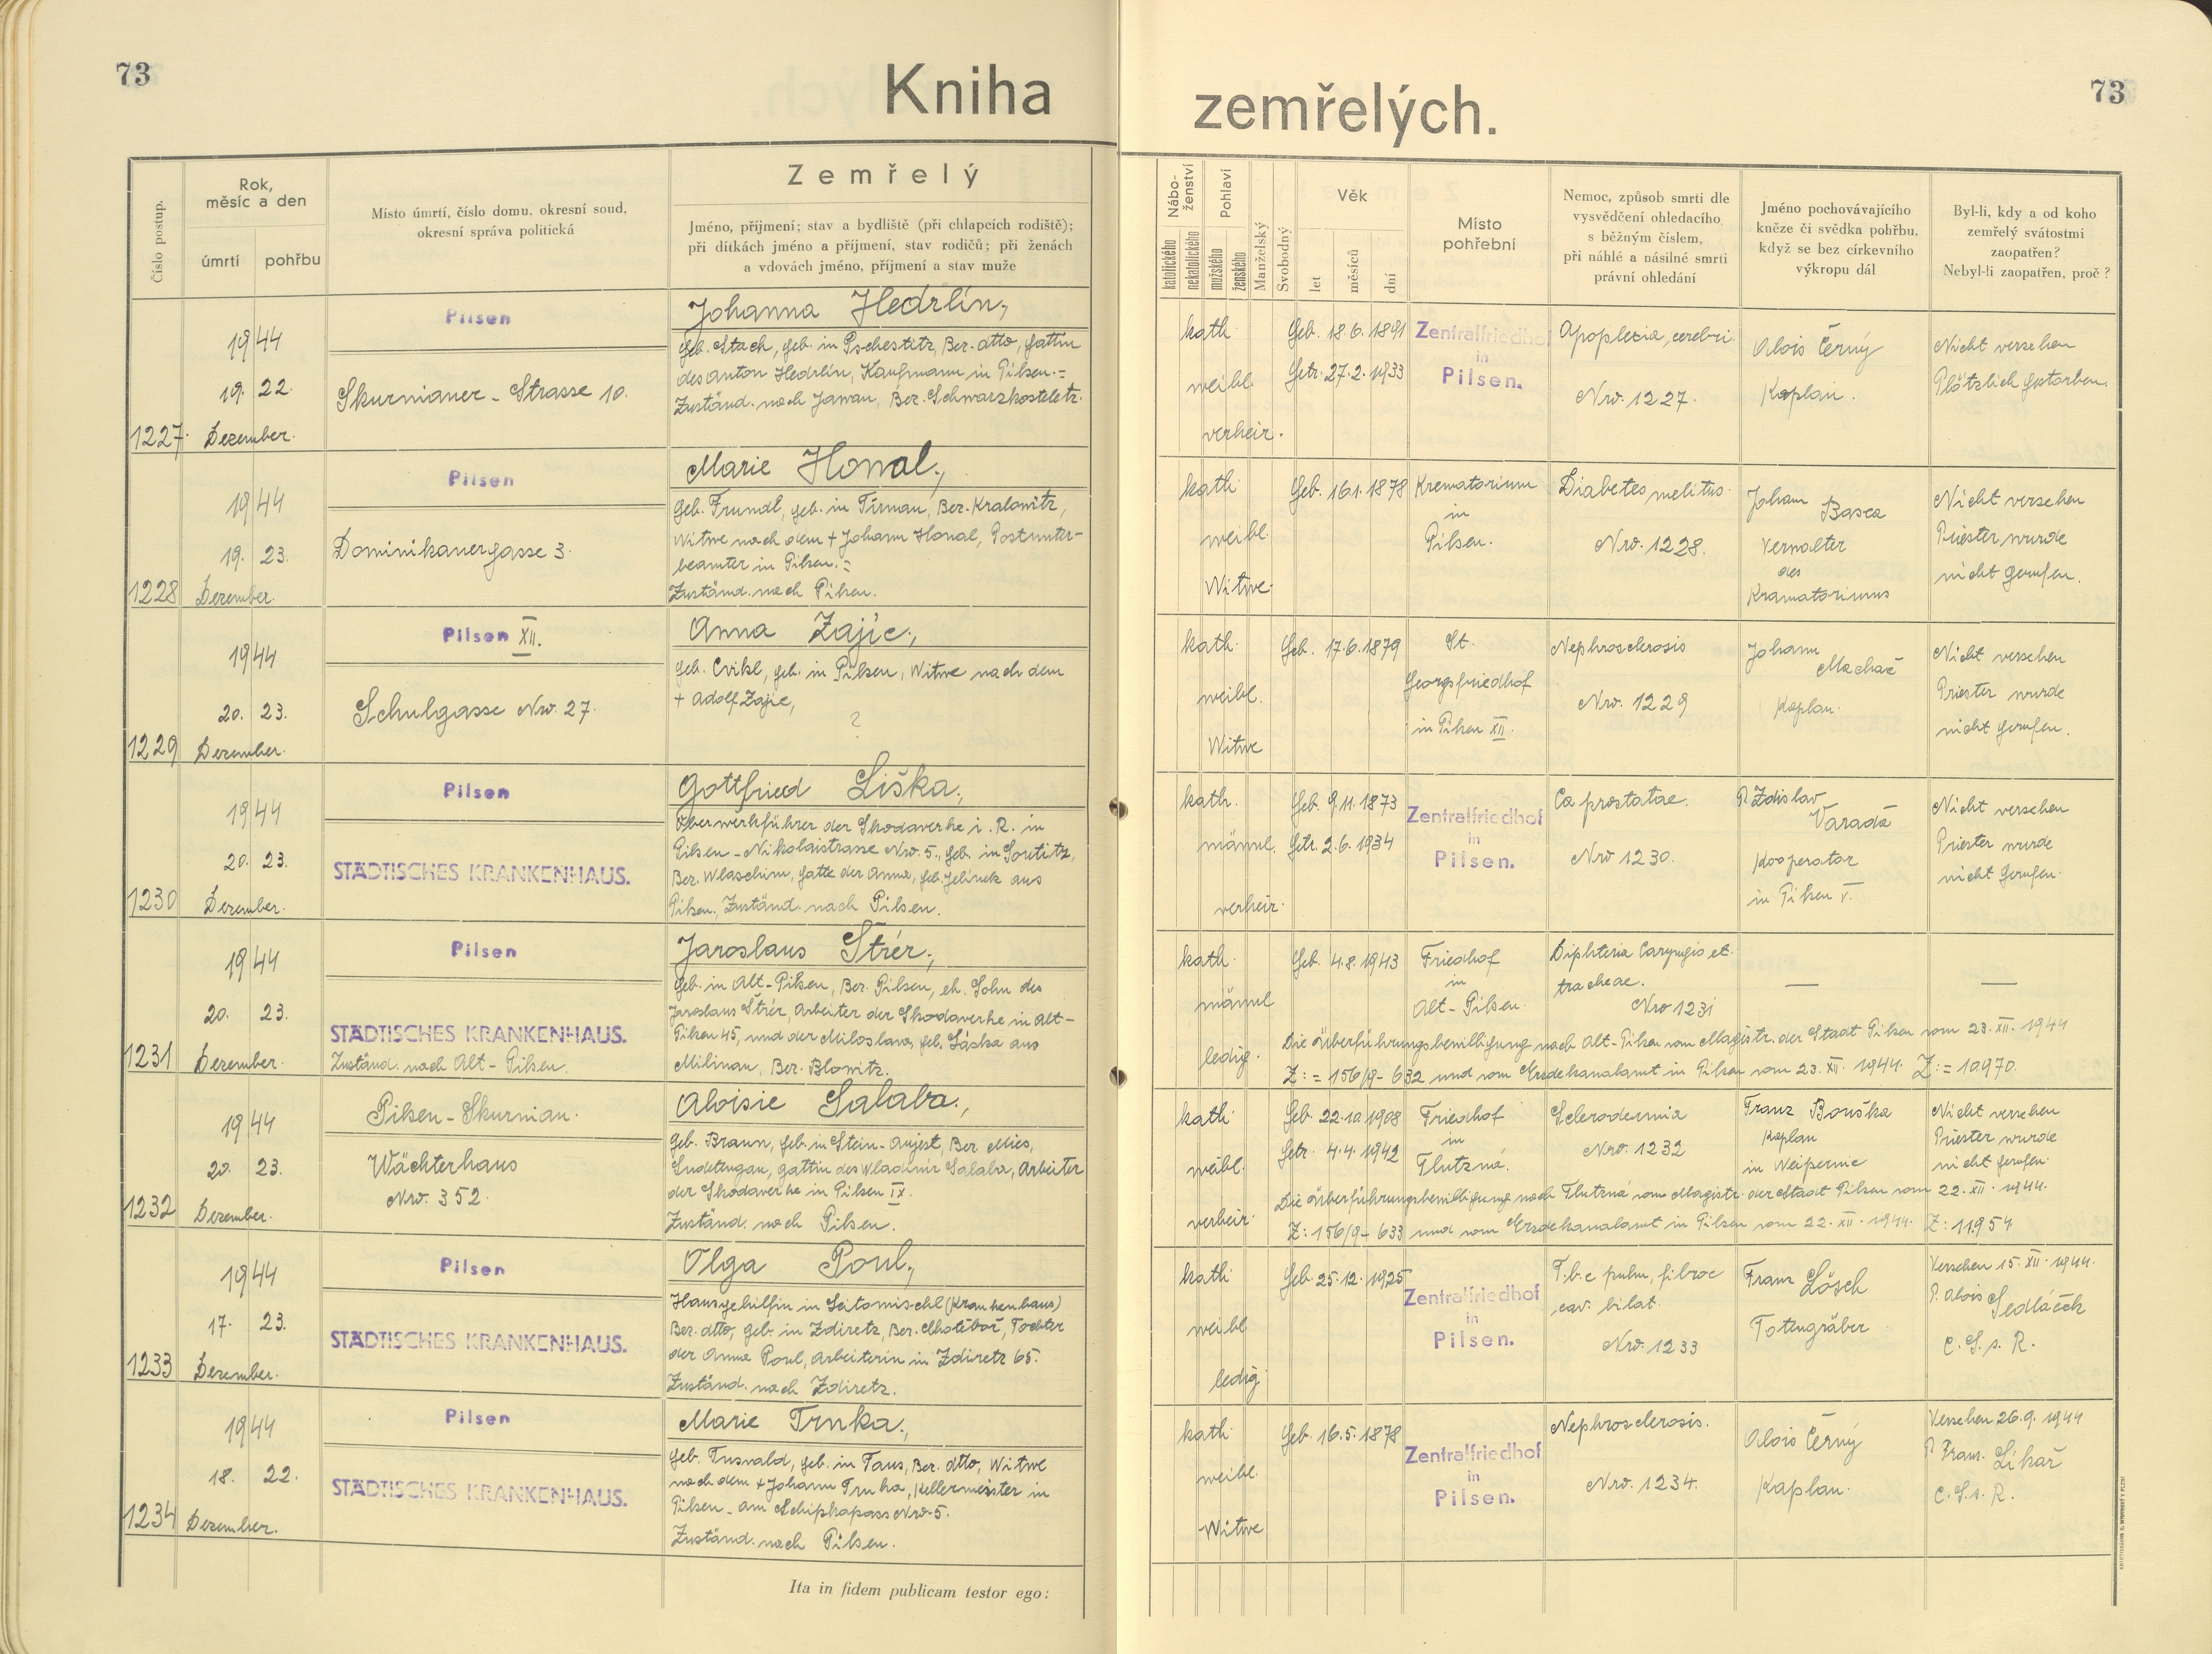 73
Kniha
zemřelých.
73
Číslo postup.
Rok,
měsíc a den
úmrtí
pohřbu
Místo úmrtí, číslo domu, okresní soud,
okresní správa politická
Zemřelý
Jméno, příjmení; stav a bydliště (při chlapcích rodiště);
při dítkách jméno a příjmení, stav rodičů; při ženách
a vdovách jméno, příjmení a stav muže
Nábo-
ženství
katolického
nekatolického
Pohlaví
mužského
ženského
Manželský
Svobodný
Věk
let
měsíců
dní
Místo
pohřební
Nemoc, způsob smrti dle
vysvědčení ohledacího
s běžným číslem,
při náhlé a násilné smrti
právní ohledání
Jméno pochovávajícího
kněze či svědka pohřbu,
když se bez církevního
výkropu dál
Byl-li, kdy a od koho
zemřelý svátostmi
zaopatřen?
Nebyl-li zaopatřen, proč?
1227.
1944
19. 22.
Dezember.
Pilsen
Skurnianer-Strasse 10.
Johanna Hedrlín,
geb. Stach, geb. in Pschestitz, Ber. dtto, Gattin
des Anton Hedrlín, Kaufmann in Pilsen.=
Zuständ. nach Jawan, Ber. Schwarzkosteletz.
kath.
weibl.
verheir.
Geb. 18.6.1891
Getr. 27.2.1933
Zentralfriedhof
in
Pilsen.
Apoplexia cerebri.
Nro. 1227.
Alois Černý
Kaplan.
Nicht versehen
Plötzlich gestorben.
1228
1944
19. 23.
Dezember.
Pilsen
Dominikanergasse 3.
Marie Honal,
geb. Frundl, geb. in Tirman, Ber. Kralowitz,
Witwe nach dem + Johann Honal, Postunter-
beamter in Pilsen.=
Zuständ. nach Pilsen.
kath.
weibl.
Witwe.
Geb. 16.1.1878
Krematorium
in
Pilsen.
Diabetes melitus.
Nro. 1228.
Johann Basea
Verwalter
des
Kramatoriums
Nicht versehen
Priester wurde
nicht gerufen.
1229
1944
20. 23.
Dezember.
Pilsen XII.
Schulgasse Nro. 27.
Anna Zajíc,
geb. Cvikl, geb. in Pilsen, Witwe nach dem
+ Adolf Zajíc,
?
kath.
weibl.
Witwe
Geb. 17.6.1879
St.
Georgsfriedhof
in Pilsen XII.
Nephrosclerosis
Nro. 1229
Johann
Machač
Kaplan.
Nicht versehen
Priester wurde
nicht gerufen.
1230
1944
20. 23.
Dezember.
Pilsen
STÄDTISCHES KRANKENHAUS.
Gottfried Liška,
Oberwerkführer der Skodawerke i. R. in
Pilsen - Nikolaistrasse Nro. 5., geb. in Soutitz,
Ber. Wlaschim, Gatte der Anna, geb. Jelinek aus
Pilsen., Zuständ. nach Pilsen.
kath.
männl.
verheir.
Geb. 9.11.1873
Getr. 2.6.1934
Zentralfriedhof
in
Pilsen.
Ca prostatae.
Nro 1230.
P. Zdislav
Varada
Kooperator
in Pilsen V.
Nicht versehen
Priester wurde
nicht gerufen.
1231
1944
20. 23.
Dezember.
Pilsen
STÄDTISCHES KRANKENHAUS.
Zuständ. nach Alt-Pilsen.
Jaroslaus Štrér,
geb. in Alt-Pilsen, Ber. Pilsen, eh. Sohn des
Jaroslaus Štrér, Arbeiter der Skodawerke in Alt-
Pilsen 45, und der Miloslava, geb. Láska aus
Milinau, Ber. Blowitz.
kath.
männl
ledig.
Geb. 4.8.1943
Friedhof
in
Alt-Pilsen.
Diphteria Laryngis et
tracheae.
Nro 1231
—
—
Die Überführungsbewilligung nach Alt-Pilsen vom Magistr. der Stadt Pilsen vom 23. XII. 1944
Z:= 156/9-632 und vom Erzdekanalamt in Pilsen vom 23. XII. 1944. Z:= 10970.
1232
1944
20. 23.
Dezember.
Pilsen-Skurnian.
Wächterhaus
Nro. 352.
Aloisie Salaba,
geb. Braun, geb. in Stein-Aujest, Ber. Mies,
Sudetengau, Gattin des Wladimir Salaba, Arbeiter
der Skodawerke in Pilsen IX.
Zuständ. nach Pilsen.
kath.
weibl.
verheir.
Geb. 22.10.1908
Getr. 4.4.1942
Friedhof
in
Tlutzná.
Sclerodermia
Nro. 1232
Franz Bouška
Kaplan
in Weipernic
Nicht versehen
Priester wurde
nicht gerufen.
Die Überführungsbewilligung nach Tlutzná vom Magistr. der Stadt Pilsen vom 22. XII. 1944.
Z: 156/9-633 und vom Erzdekanalamt in Pilsen vom 22. XII. 1944. Z: 11954
1233
1944
17. 23.
Dezember.
Pilsen
STÄDTISCHES KRANKENHAUS.
Olga Poul,
Hausgehilfin in Leitomischl (Krankenhaus)
Ber. dtto, geb. in Zdiretz, Ber. Chotěboř, Tochter
der Anna Poul, Arbeiterin in Zdiretz 65.
Zuständ. nach Zdiretz.
kath.
weibl
ledig
Geb. 25.12.1925
Zentralfriedhof
in
Pilsen.
T.b.c pulm, fibroc
cav. bilat.
Nro. 1233
Franz Lösch
Totengräber
Versehen 15. XII. 1944.
P. Alois Sedláček
C. S. s. R.
1234
1944
18. 22.
Dezember.
Pilsen
STÄDTISCHES KRANKENHAUS.
Marie Trnka,
geb. Tusvald, geb. in Taus, Ber. dtto, Witwe
nach dem + Johann Trnka, Kellermeister in
Pilsen - am Schipkapass Nro. 5.
Zuständ. nach Pilsen.
kath.
weibl.
Witwe
Geb. 16.5.1878
Zentralfriedhof
in
Pilsen.
Nephrosclerosis.
Nro. 1234.
Alois Černý
Kaplan.
Versehen 26.9.1944
P. Franz. Likař
C. S. s. R.
Ita in fidem publicam testor ego: